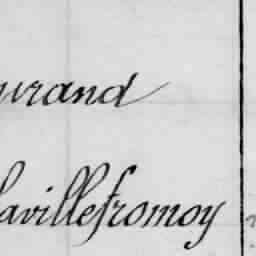 urand
lavillefromoy